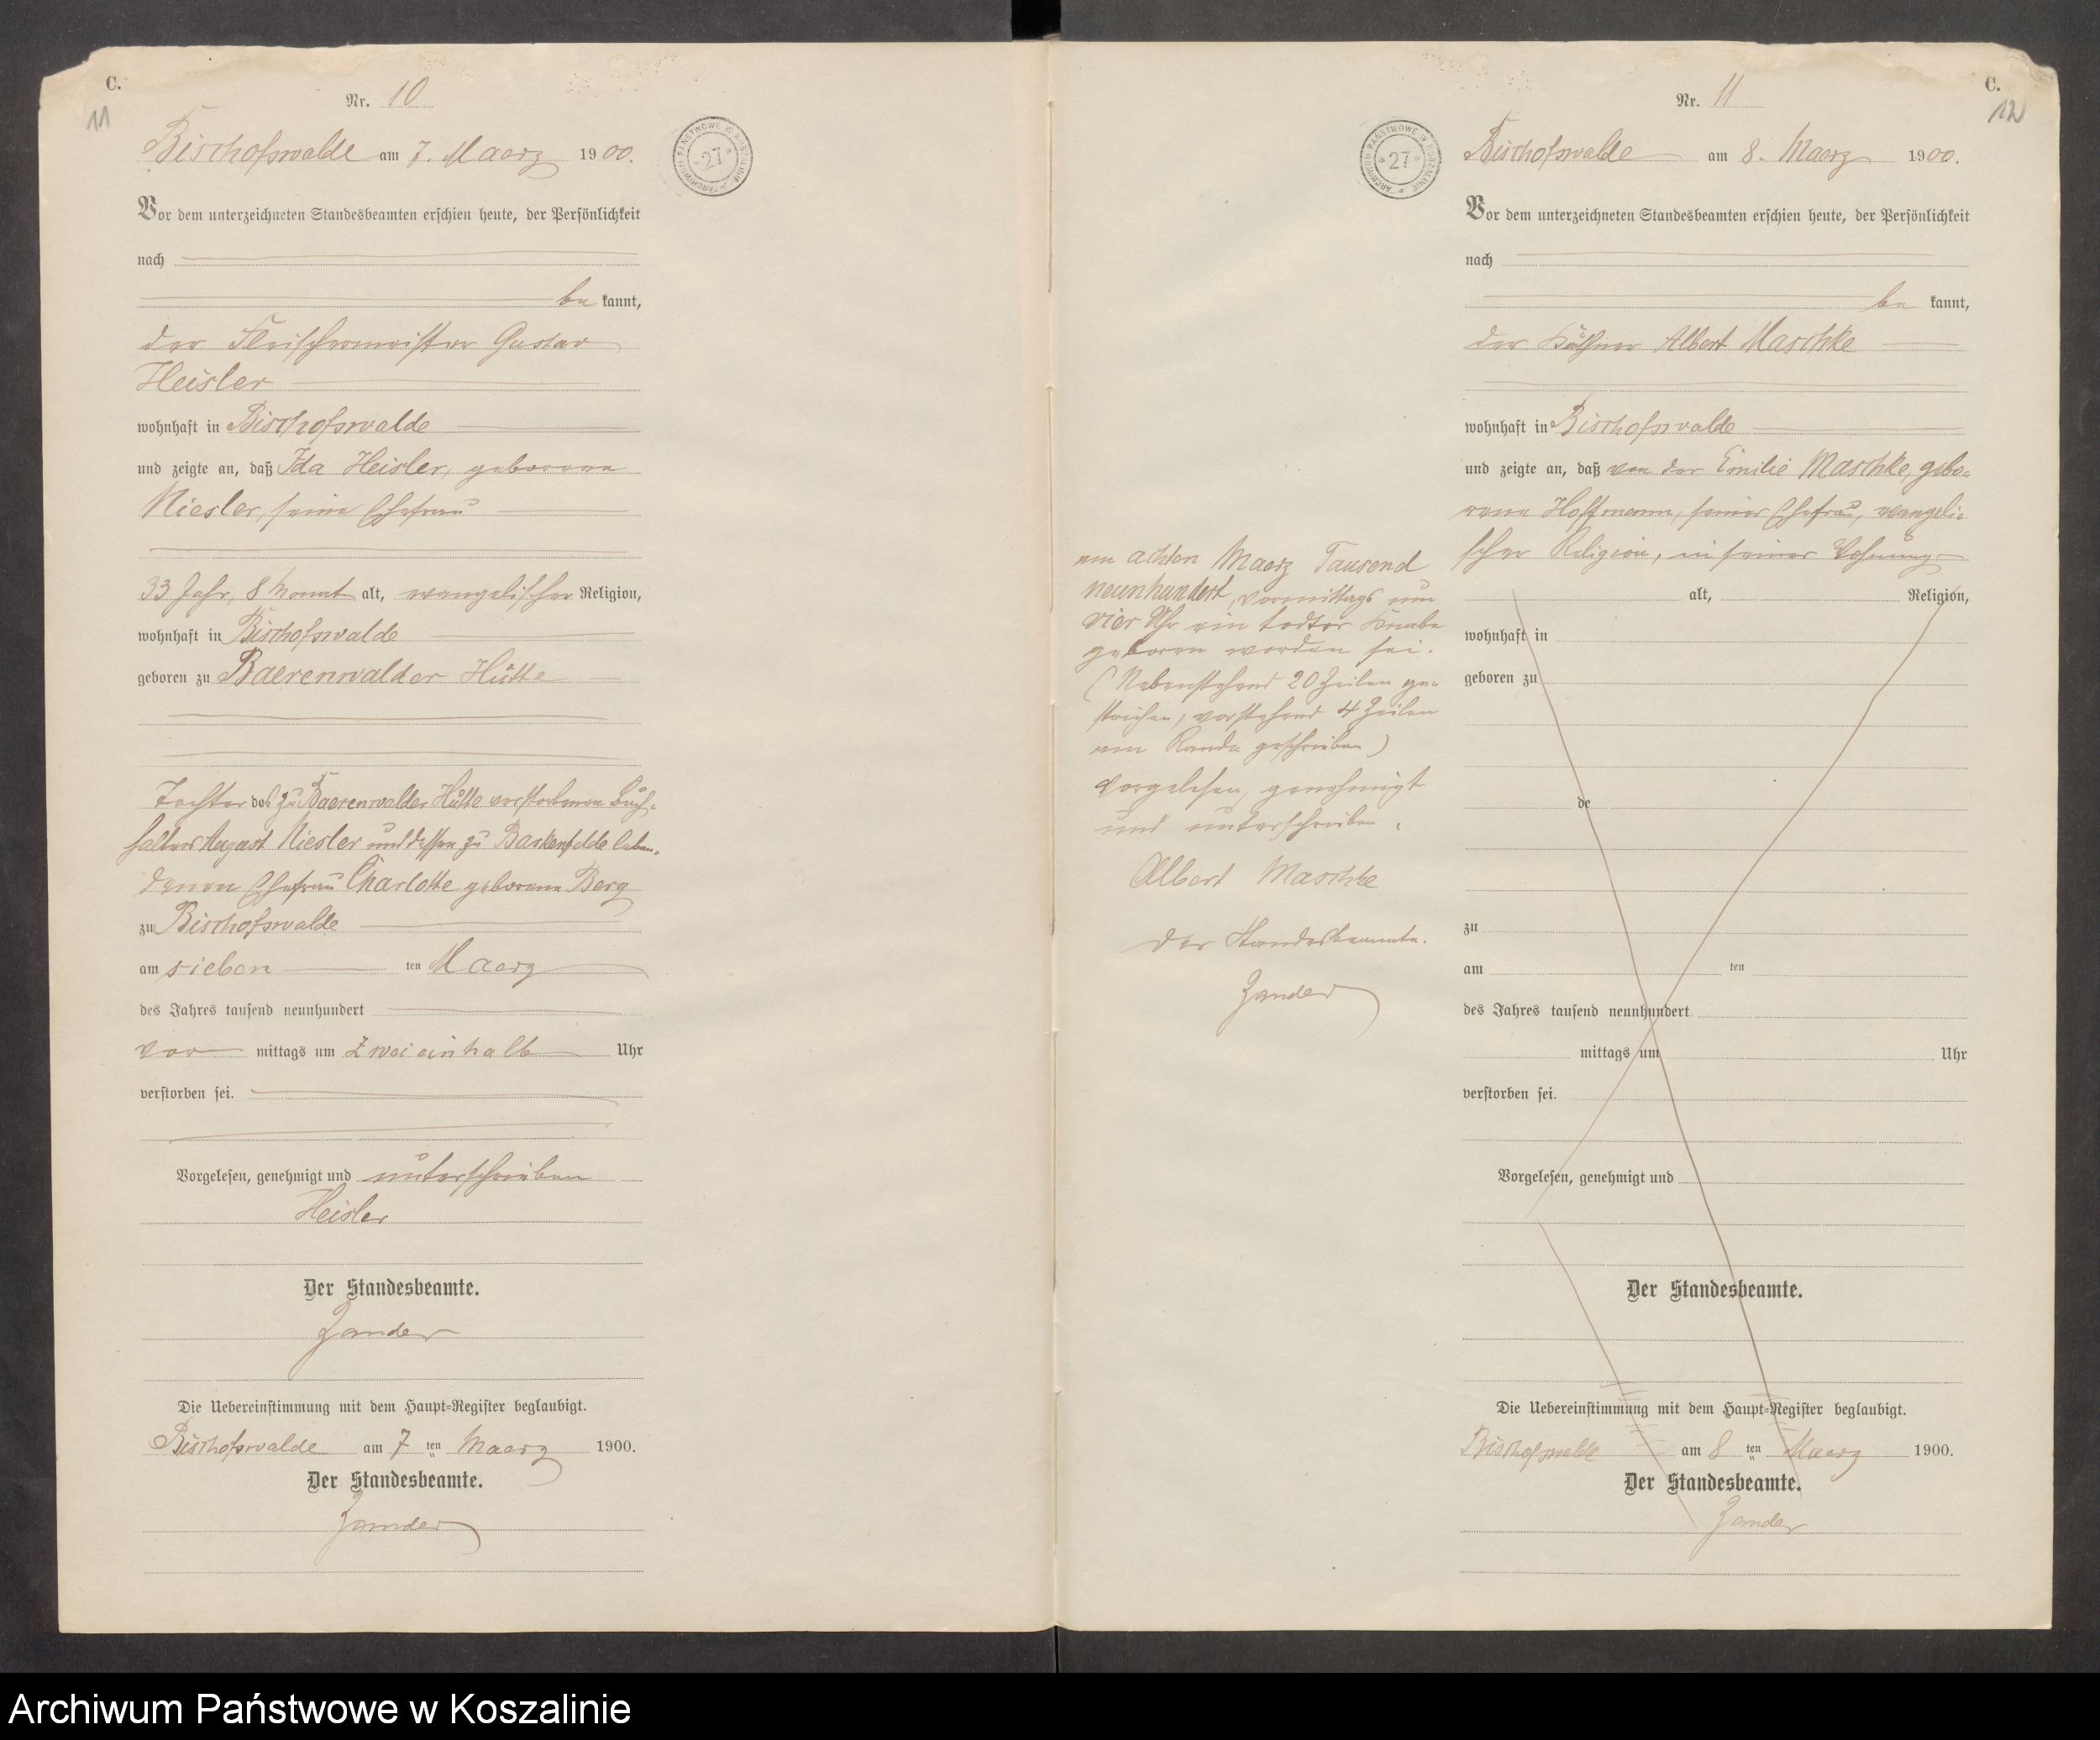 C.
11
Nr. 10
Bischofswalde am 7. Maerz 1900.
ARCHIWUM PAŃSTWOWE W KOSZALINIE * 27 *
Vor dem unterzeichneten Standesbeamten erschien heute, der Persönlichkeit
nach
be kannt,
der Fleischermeister Gustav
Heisler
wohnhaft in Bischofswalde
und zeigte an, daß Ida Heisler, geborene
Niesler, seine Ehefrau
33 Jahr, 8 Monat alt, evangelischer Religion,
wohnhaft in Bischofswalde
geboren zu Baerenwalder Hütte
Tochter des zu Baerenwalder Hütte verstorbenen Buch-
halters August Niesler und dessen zu Barkenfelde leben-
denen Ehefrau Charlotte geborene Berg
zu Bischofswalde
am sieben ten Maerz
des Jahres tausend neunhundert
Vor mittags um zwei einhalb Uhr
verstorben sei.
Vorgelesen, genehmigt und unterschrieben
Heisler
Der Standesbeamte.
Zander
Die Uebereinstimmung mit dem Haupt-Register beglaubigt.
Bischofswalde am 7 ten Maerz 1900.
Der Standesbeamte.
Zander
C.
12
Nr. 11
ARCHIWUM PAŃSTWOWE W KOSZALINIE * 27 *
Bischofswalde am 8. Maerz 1900.
Vor dem unterzeichneten Standesbeamten erschien heute, der Persönlichkeit
nach
be kannt,
der Käthner Albert Maschke
wohnhaft in Bischofswalde
und zeigte an, daß von der Emilie Maschke, gebo-
rene Hoffmann, seiner Ehefrau, evangeli-
scher Religion, in seiner Wohnung
am achten Maerz Tausend
neunhundert, vormittags um
vier Uhr ein todter Knabe
geboren worden sei.
(Nebenstehend 20 Zeilen ge-
strichen, vorstehend 4 Zeilen
am Rande geschrieben)
Vorgelesen, genehmigt
und unterschrieben.
Albert Maschke
Der Standesbeamte.
Zander
alt, Religion,
wohnhaft in
geboren zu
de
zu
am ten
des Jahres tausend neunhundert
mittags um Uhr
verstorben sei.
Vorgelesen, genehmigt und
Der Standesbeamte.
Die Uebereinstimmung mit dem Haupt-Register beglaubigt.
Bischofswalde am 8 ten Maerz 1900.
Der Standesbeamte.
Zander
Archiwum Państwowe w Koszalinie